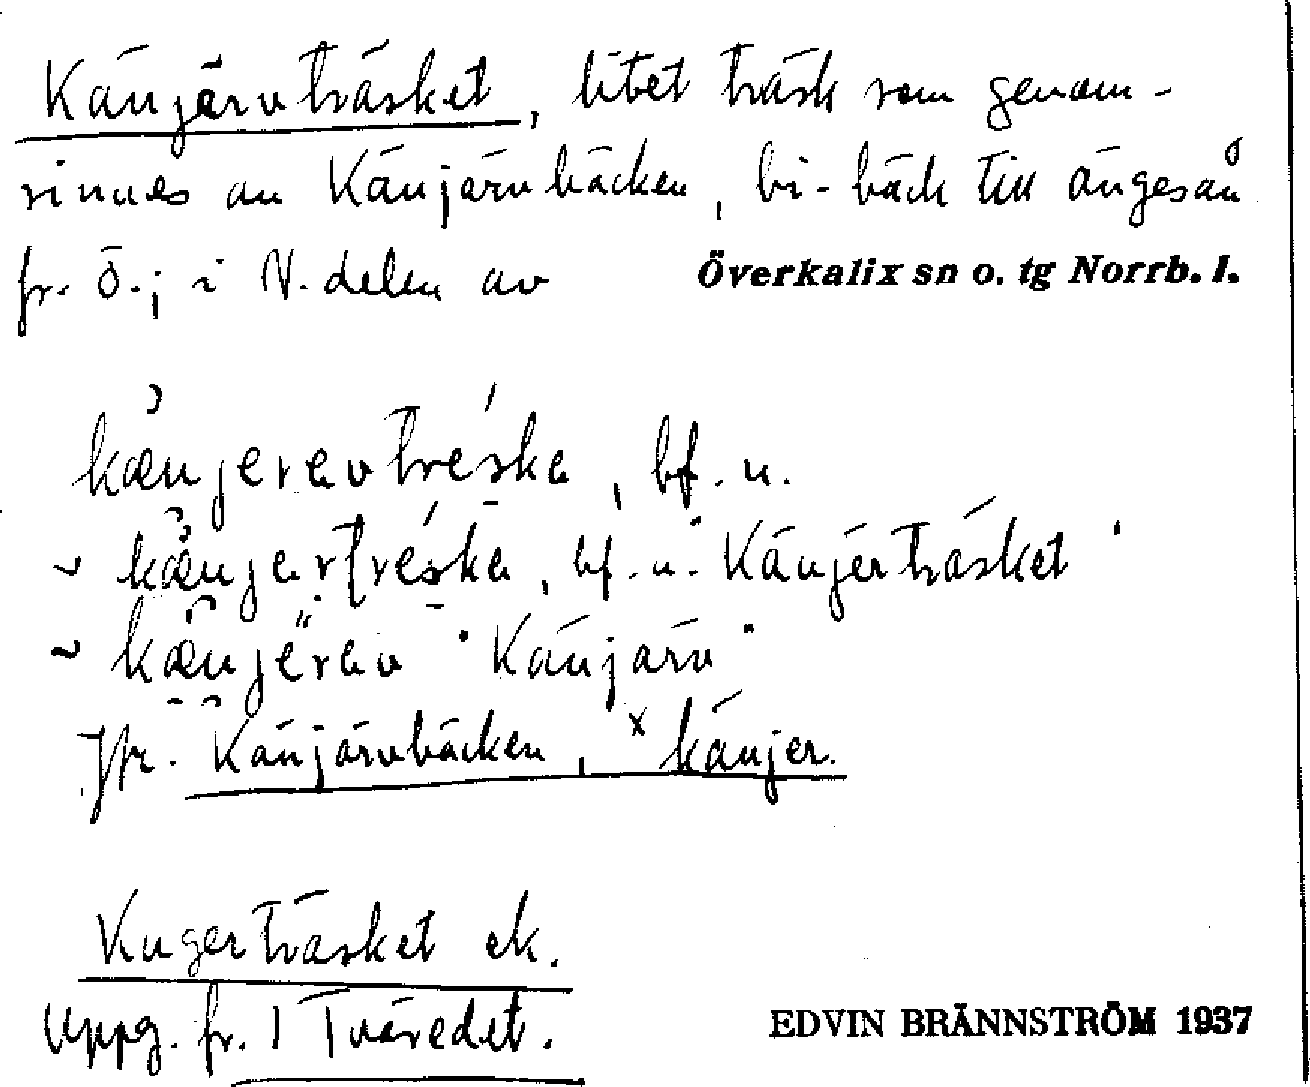 Känjärvträsket, litet träsk som genom-
rinnes av Känjärvbäcken, bi-bäck till Ängesån
fr. Ö.; i N. delen av Överkalix sn o. tg Norrb. l.
kænjerevtréska, bf. n.
~ kænjertréska, bf. n. "Känjerträsket"
~ kænjërev "Känjärv"
Jfr. Känjärvbäcken, ˣkänjer.
Kugerträsket ek.
Uppg. fr. 1 Tväredet.
EDVIN BRÄNNSTRÖM 1937